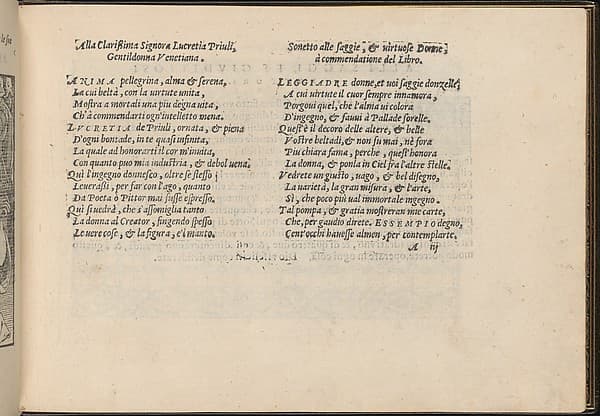 Alla Clarissima Signora Lucretia Priuli,
Gentildonna Venetiana.
ANIMA pellegrina, alma & serena,
La cui beltà, con la uirtute unita,
Mostra a mortali una piu degna uita,
Ch'à commendarti ogn'intelletto mena.
LVCRETIA de Priuli, ornata, & piena
D'ogni bontade, in te quasi infinita,
La quale ad honorarti il cor m'inuita,
Con quanto puo mia industria, & debol uena.
Quì l'ingegno donnesco, oltre se stesso
Leuerassi, per far con l'ago, quanto
Da Poeta ò Pittor mai fusse espresso.
Quì si uedrà, che s'assomiglia tanto
La donna al Creator, fingendo spesso
Le uere cose, & la figura, e'l manto.
Sonetto alle saggie, & uirtuose Donne
à commendatione del Libro.
LEGGIADRE donne, et uoi saggie donzelle,
A cui uirtute il cuor sempre innamora,
Porgoui quel, che l'alma ui colora
D'ingegno, & suaui à Pallade sorelle.
Quest'è il decoro delle altere, & belle
Vostre beltadi, & non fu mai, nè fora
Piu chiara fama, perche, quest'honora
La donna, & ponla in Ciel fra l'altre stelle.
Vedrete un giusto, uago, & bel disegno,
La varietà, la gran misura, & l'arte,
Sì, che poco più ual immortale ingegno.
Tal pompa, & gratia mostreran mie carte,
Che, per gaudio direte. ESSEMPIO degno,
Cent'occhi hauesse almen, per contemplarte.
A iij